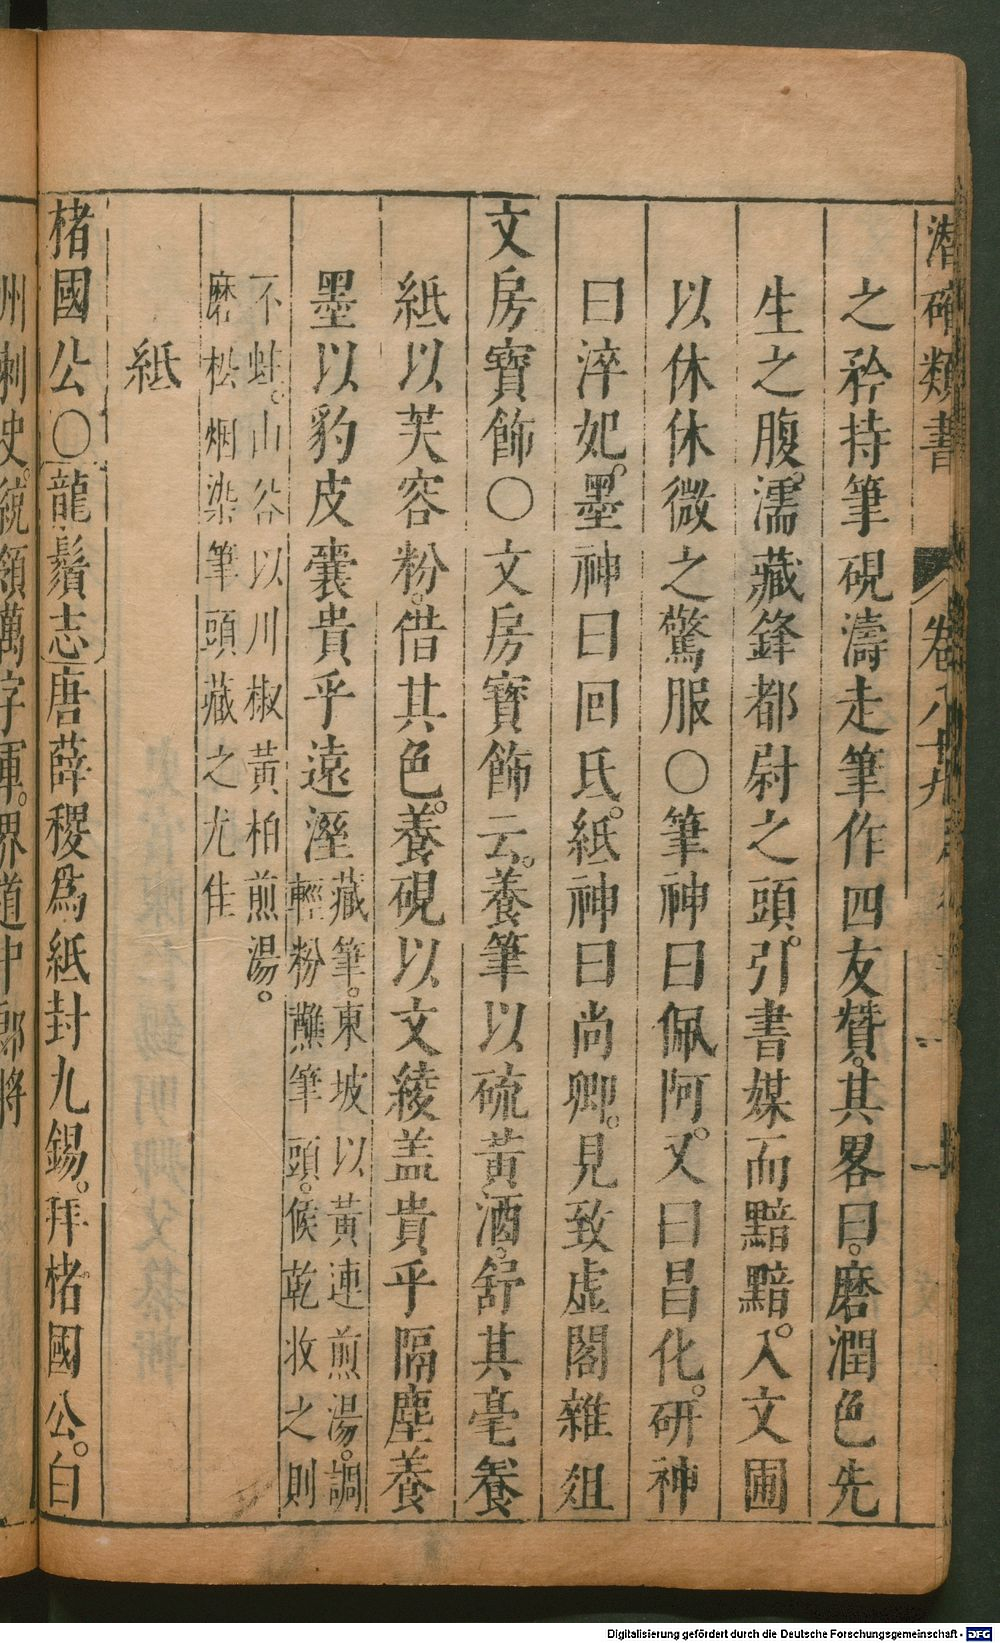 潛確類書 卷八十九
之矜持筆硯濤走筆作四友贊。其畧曰。磨潤色先
生之腹。濡藏鋒都尉之頭。引書媒而黯黯。入文圃
以休休微之驚服〇筆神曰佩阿。又曰昌化。硏神
曰淬妃。墨神曰回氏。紙神曰尚卿。見致虛閣雜俎
文房寶飾〇文房寶飾云。養筆以硫黃酒。舒其毫養
紙以芙容粉。借其色。養硯以文綾盖貴乎隔塵養
墨以豹皮囊貴乎遠溼藏筆。東坡以黃連煎湯。調
輕粉蘸筆頭。候乾收之則
不蛀。山谷以川椒黃柏煎湯。
磨松烟染筆頭藏之尤佳
紙
楮國公〇龍鬚志唐薛稷爲紙封九錫。拜楮國公。白
州刺史。統領萬字軍。界道中郎將
Digitalisierung gefördert durch die Deutsche Forschungsgemeinschaft - DFG